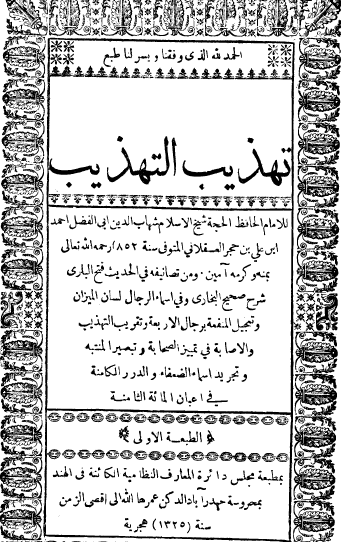 الحمد لله الذى وفقنا ويسر لنا طبع
تهذيب التهذيب
للامام الحافظ الحجة شيخ الاسلام شهاب الدين ابى الفضل احمد
ابن على بن حجر العسقلانى المتوفى سنة ٨٥٢ رحمه الله تعالى
بمنه وكرمه آمين . ومن تصانيفه فى الحديث فتح البارى
شرح صحيح البخارى وفى اسماء الرجال لسان الميزان
وتعجيل المنفعة برجال الاربعة وتقريب التهذيب
والاصابة فى تمييز الصحابة وتبصير المنتبه
وتجريد اسماء الضعفاء والدرر الكامنة
فى اعيان المائة الثامنة
الطبعة الاولى
بمطبعة مجلس دائرة المعارف النظامية الكائنة فى الهند
بمحروسة حيدرآباد الدكن عمرها الله الى اقصى الزمن
سنة (١٣٢٥) هجرية